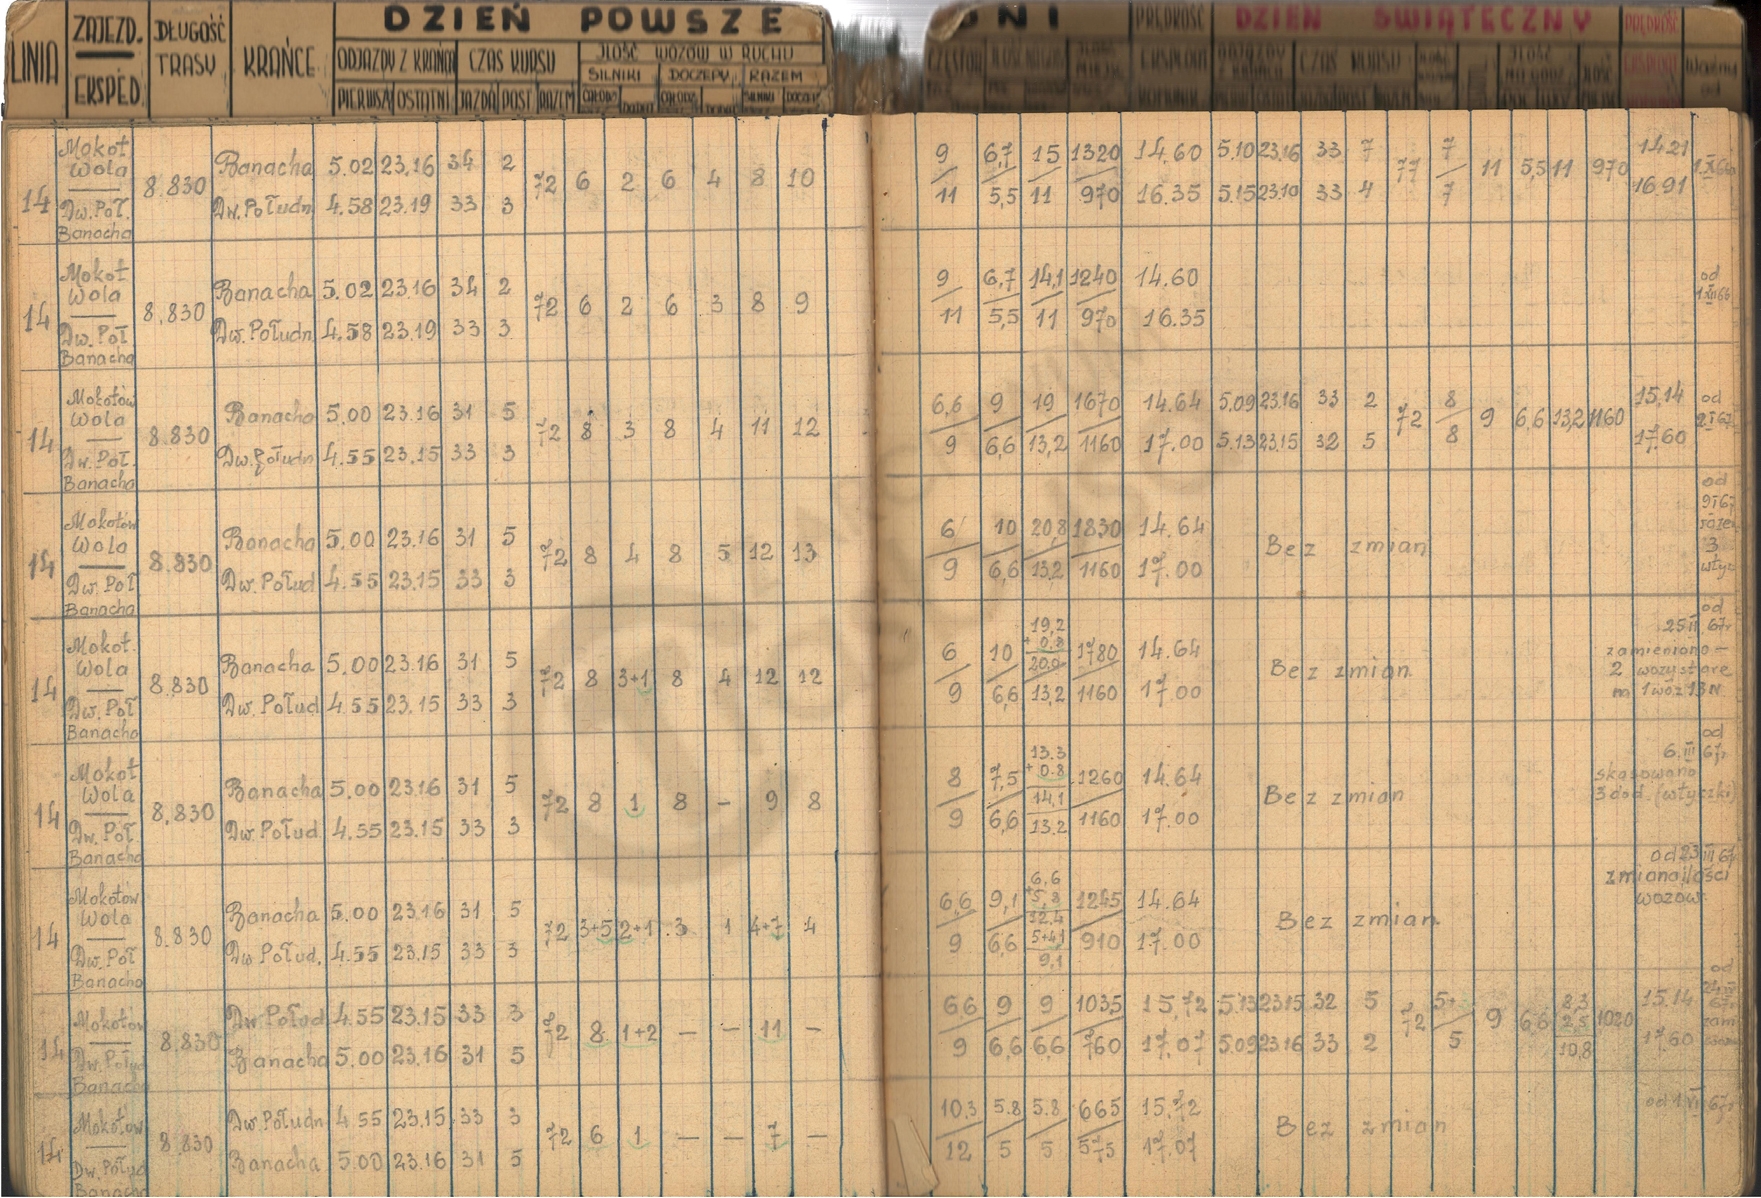 LINIA ZAJEZD. EKSPED. DŁUGOŚĆ TRASY KRAŃCE DZIEŃ POWSZE DNI PRĘDKOŚĆ DZIEŃ ŚWIĄTECZNY PRĘDKOŚĆ
ODJAZDY Z KRAŃCA CZAS KURSU ILOŚĆ WOZÓW W RUCHU
SILNIKI DOCZEPY RAZEM
PIERWSZY OSTATNI JAZDA POST RAZEM
Mokot
Wola
14 Dw. Poł. Banacha 8.830
Banacha 5.02 23.16 34 2 72 6 2 6 4 8 10 9 6,7 15 1320 14.60 5.10 23.16 33 7 77 7 11 5,5 11 970 14.21
Dw. Połudn 4.58 23.19 33 3 11 5,5 11 970 16.35 5.15 23.10 33 4 7 16.91
Mokot
Wola
14 Dw. Poł Banacha 8.830
Banacha 5.02 23.16 34 2 72 6 2 6 3 8 9 9 6,7 14,1 1240 14.60 od 1 XII 66
Dw. Połudn 4.58 23.19 33 3 11 5,5 11 970 16.35
Mokotów
Wola
14 Dw. Poł. Banacha 8.830
Banacha 5.00 23.16 31 5 72 8 3 8 4 11 12 6,6 9 19 1670 14.64 5.09 23.16 33 2 72 8 9 6,6 13,2 1160 15,14 od 2 I 67
Dw. Połudn 4.55 23.15 33 3 9 6,6 13,2 1160 17.00 5.13 23.15 32 5 8 17.60
Mokotów
Wola
14 Dw. Poł Banacha 8.830
Banacha 5.00 23.16 31 5 72 8 4 8 5 12 13 6 10 20,8 1830 14.64 Bez zmian od 9 I 67
Dw. Połud 4.55 23.15 33 3 9 6,6 13,2 1160 17.00
Mokot.
Wola
14 Dw. Poł Banacha 8.830
Banacha 5.00 23.16 31 5 72 8 3+1 8 4 12 12 6 10 19,2 + 0.8 20.0 1780 14.64 Bez zmian
Dw. Połud 4.55 23.15 33 3 9 6,6 13,2 1160 17.00
od 25 II 67r
zamieniono –
2 wozy stare
na 1 wóz 13N
Mokot
Wola
14 Dw. Poł. Banacha 8.830
Banacha 5.00 23.16 31 5 72 8 1 8 – 9 8 8 7,5 13.3 + 0.8 14,1 1260 14.64 Bez zmian
Dw. Połud. 4.55 23.15 33 3 9 6,6 13.2 1160 17.00
od 6. III 67r
skasowano
3 dod. (wtyczki)
Mokotów
Wola
14 Dw. Poł Banacha 8.830
Banacha 5.00 23.16 31 5 72 3+5 2+1 3 1 4+7 4 6,6 9,1 6,6 +5,8 12,4 1245 14.64 Bez zmian
Dw Połud. 4.55 23.15 33 3 9 6,6 5+4,1 9,1 910 17.00
od 23 III 67
zmiana ilości
wozów
Mokotów
14 Dw. Połud Banacha 8.830
Dw. Połud 4.55 23.15 33 3 72 8 1+2 – – 11 – 6,6 9 9 1035 15,72 5.13 23.15 32 5 72 5+ 9 6,6 8,3 2,5 10,8 1020 15.14
Banacha 5.00 23.16 31 5 9 6,6 6,6 760 17.07 5.09 23.16 33 2 5 17.60
Mokotów
14 Dw. Połud Banacha 8.830
Dw. Połudn 4.55 23.15 33 3 72 6 1 – – 7 – 10,3 5.8 5.8 665 15.72 Bez zmian od 1 VI 67r
Banacha 5.00 23.16 31 5 12 5 5 575 17.07